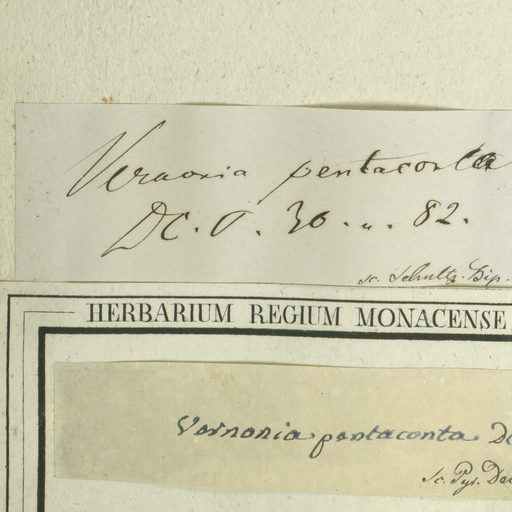 Vernonia pentaconta
DC. 5. 30. n. 82.
sc. Schultz. Bip.
HERBARIUM REGIUM MONACENSE
Vernonia pentaconta. DC
Sc. Pyr. Dec